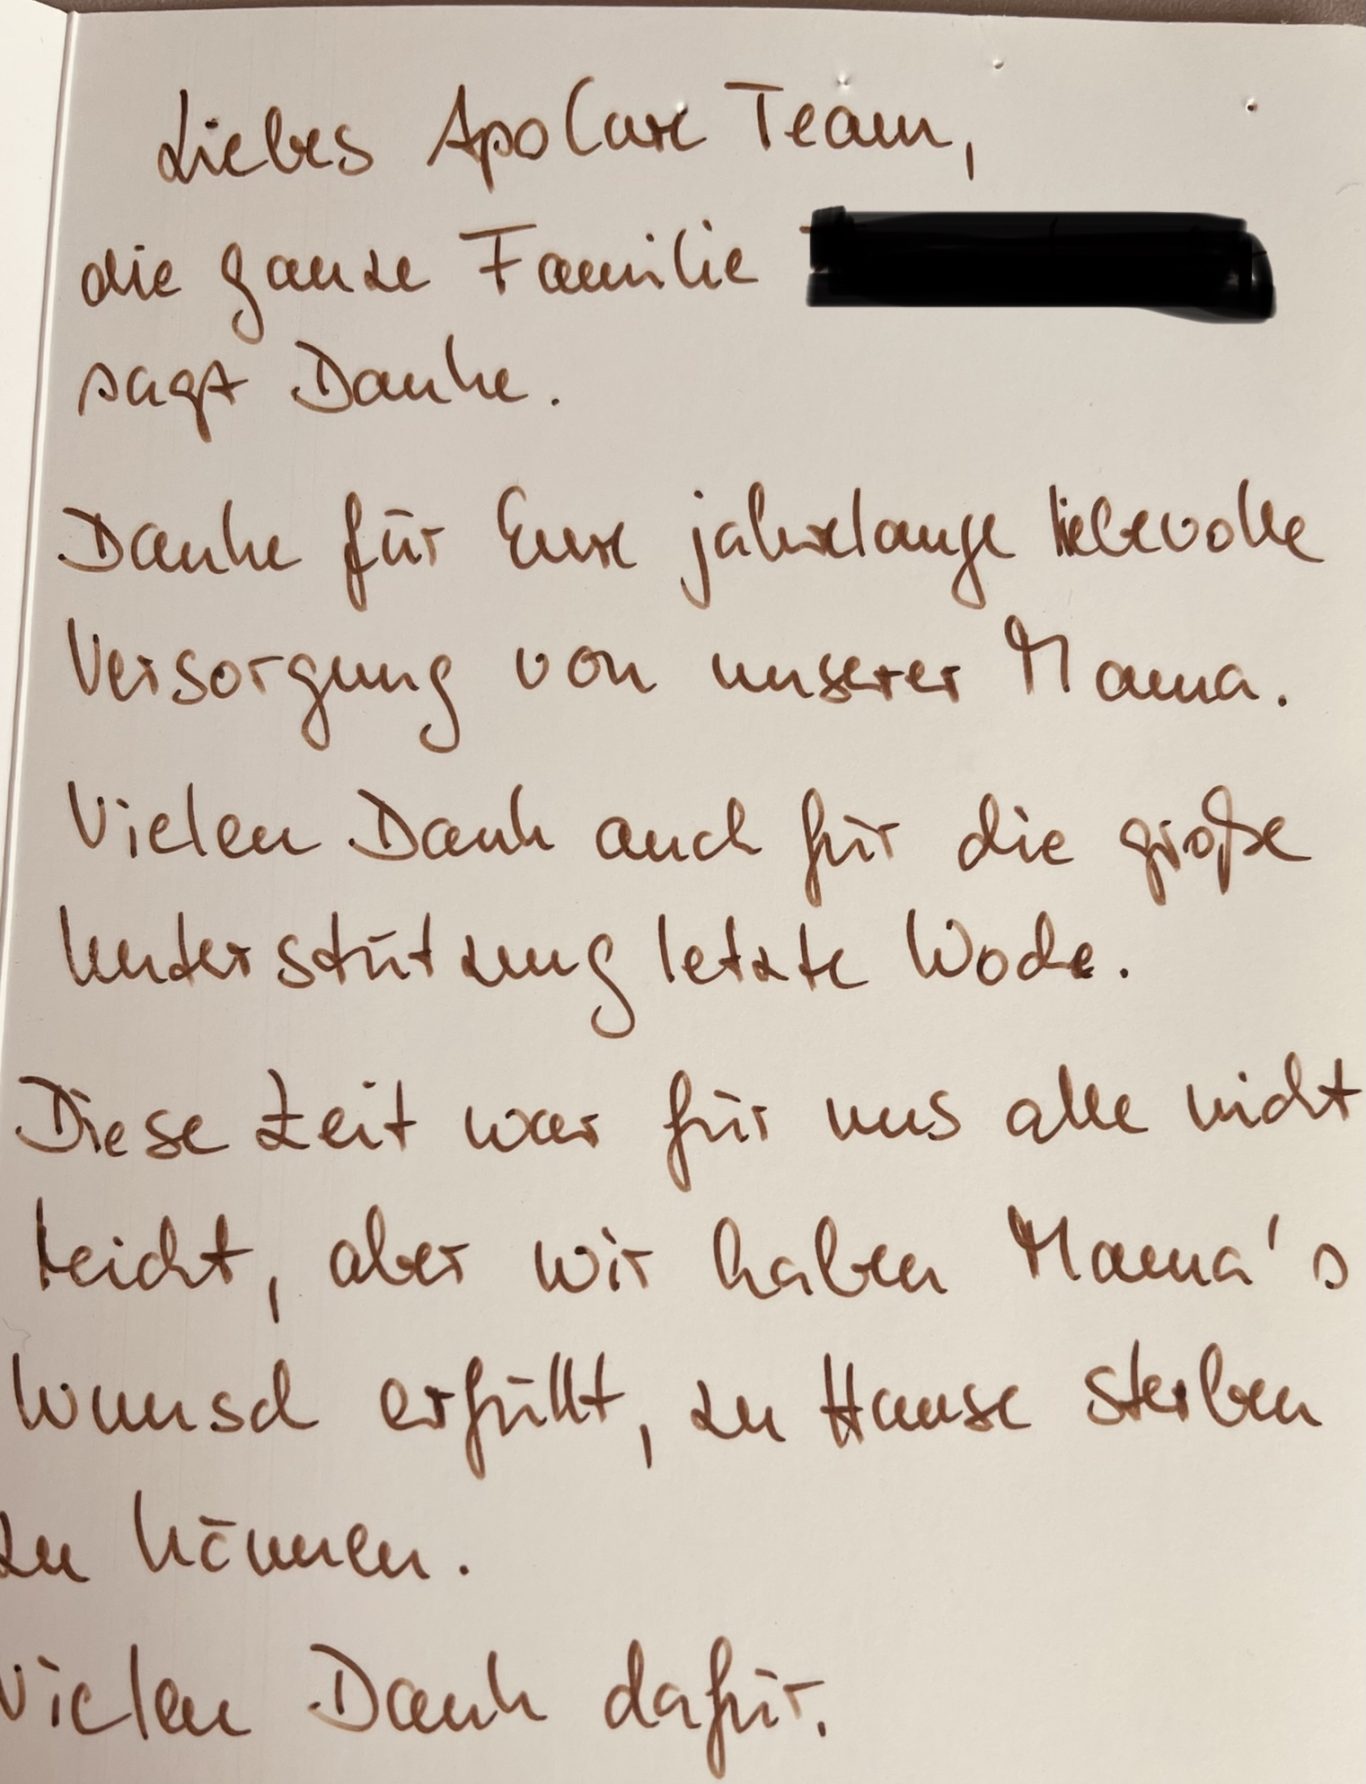 Liebes ApoCare Team,
die ganze Familie
sagt Danke.
Danke für Eure jahrelange liebevolle
Versorgung von unserer Mama.
Vielen Dank auch für die große
Unterstützung letzte Woche.
Diese Zeit war für uns alle nicht
leicht, aber wir haben Mama's
Wunsch erfüllt, zu Hause sterben
zu können.
Vielen Dank dafür.